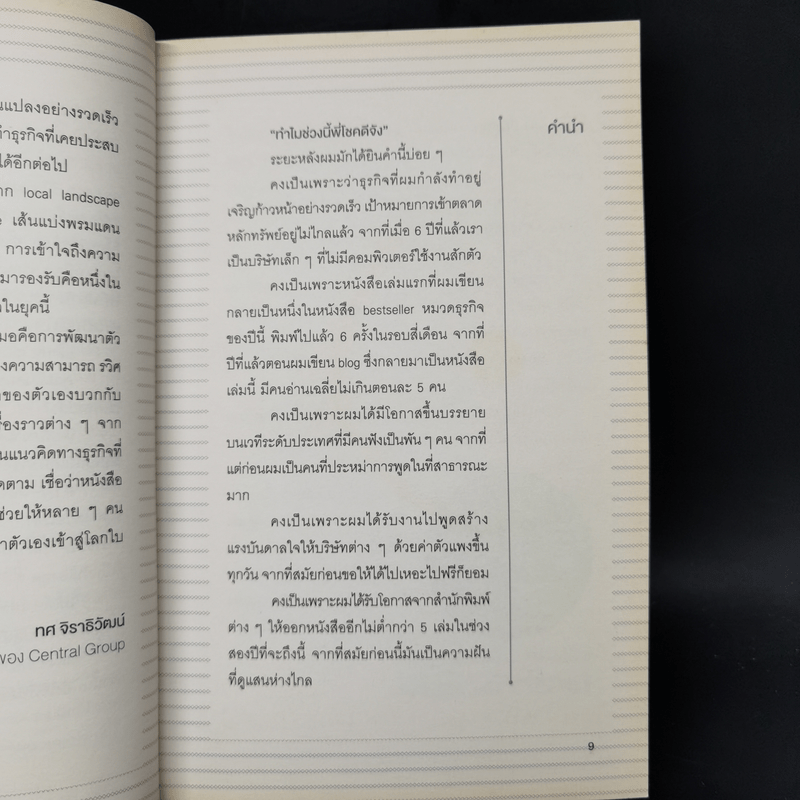 นแปลงอย่างรวดเร็ว
ทำธุรกิจที่เคยประสบ
ได้อีกต่อไป
local landscape
เส้นแบ่งพรมแดน
การเข้าใจถึงความ
มารองรับคือหนึ่งใน
ในยุคนี้
มอคือการพัฒนาตัว
งความสามารถ รวิศ
ของตัวเองบวกกับ
รื่องราวต่าง ๆ จาก
นแนวคิดทางธุรกิจที่
ดตาม เชื่อว่าหนังสือ
ช่วยให้หลาย ๆ คน
าตัวเองเข้าสู่โลกใบ
ทศ จิราธิวัฒน์
ของ Central Group
คำนำ
"ทำไมช่วงนี้พี่โชคดีจัง"
ระยะหลังผมมักได้ยินคำนี้บ่อย ๆ
คงเป็นเพราะว่าธุรกิจที่ผมกำลังทำอยู่
เจริญก้าวหน้าอย่างรวดเร็ว เป้าหมายการเข้าตลาด
หลักทรัพย์อยู่ไม่ไกลแล้ว จากที่เมื่อ 6 ปีที่แล้วเรา
เป็นบริษัทเล็ก ๆ ที่ไม่มีคอมพิวเตอร์ใช้งานสักตัว
คงเป็นเพราะหนังสือเล่มแรกที่ผมเขียน
กลายเป็นหนึ่งในหนังสือ bestseller หมวดธุรกิจ
ของปีนี้ พิมพ์ไปแล้ว 6 ครั้งในรอบสี่เดือน จากที่
ปีที่แล้วตอนผมเขียน blog ซึ่งกลายมาเป็นหนังสือ
เล่มนี้ มีคนอ่านเฉลี่ยไม่เกินตอนละ 5 คน
คงเป็นเพราะผมได้มีโอกาสขึ้นบรรยาย
บนเวทีระดับประเทศที่มีคนฟังเป็นพัน ๆ คน จากที่
แต่ก่อนผมเป็นคนที่ประหม่าการพูดในที่สาธารณะ
มาก
คงเป็นเพราะผมได้รับงานไปพูดสร้าง
แรงบันดาลใจให้บริษัทต่าง ๆ ด้วยค่าตัวแพงขึ้น
ทุกวัน จากที่สมัยก่อนขอให้ได้ไปเหอะไปฟรีก็ยอม
คงเป็นเพราะผมได้รับโอกาสจากสำนักพิมพ์
ต่าง ๆ ให้ออกหนังสืออีกไม่ต่ำกว่า 5 เล่มในช่วง
สองปีที่จะถึงนี้ จากที่สมัยก่อนนี้มันเป็นความฝัน
ที่ดูแสนห่างไกล
9